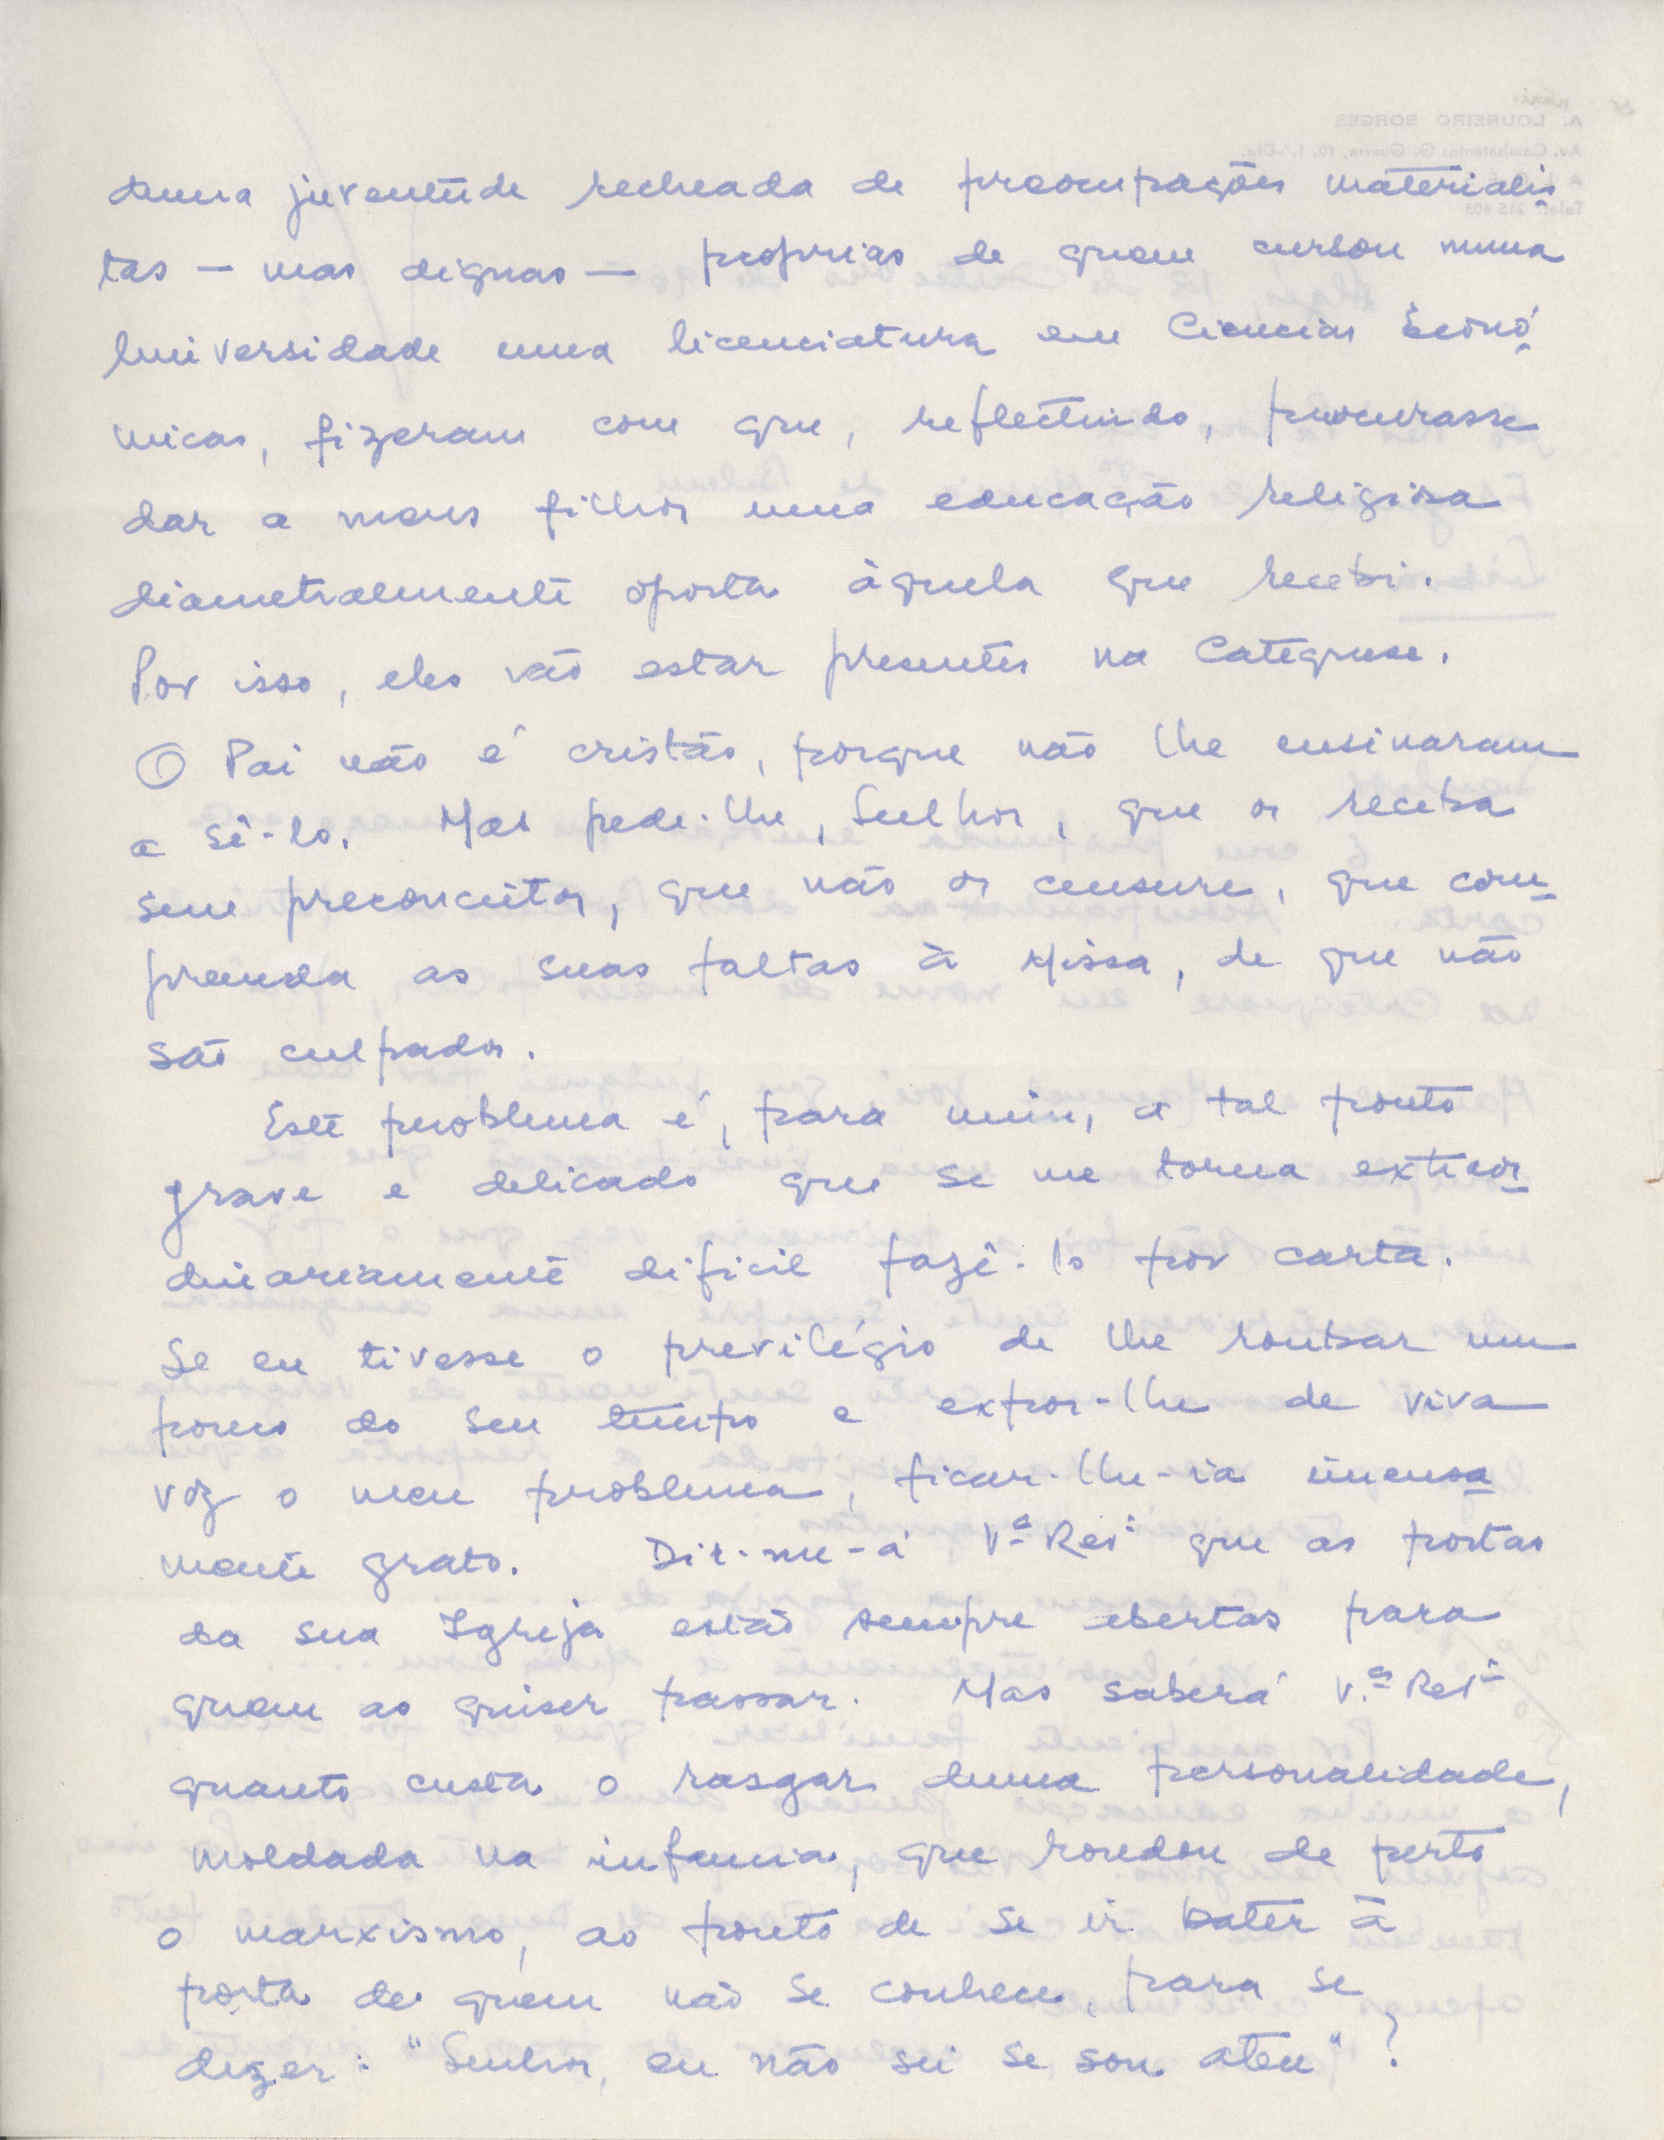 duma juventude recheada de preocupações materialis
tas — mas dignas — proprias de quem cursou numa
Universidade uma licenciatura em Ciencias Econó
micas, fizeram com que, reflectindo, procurasse
dar a meus filhos uma educação religiosa
diametralmente oposta àquela que recebi.
Por isso, eles vão estar presentes na Catequese.
O Pai não é cristão, porque não lhe ensinaram
a sê-lo. Mas pede-lhe, Senhor, que os receba
sem preconceitos, que não os censure, que com
preenda as suas faltas à Missa, de que não
são culpados.
Este problema é, para mim, a tal ponto
grave e delicado que se me torna extraor
dinariamente dificil fazê-lo por carta.
Se eu tivesse o previlégio de lhe roubar um
pouco do seu tempo e expor-lhe de viva
voz o meu problema, ficar-lhe-ia imensa
mente grato. Dir-me-á Vª Revª que as portas
da sua Igreja estão sempre abertas para
quem as quiser passar. Mas saberá V.ª Revª
quanto custa o rasgar duma personalidade,
moldada na infancia, que rondou de perto
o marxismo, ao ponto de se ir bater à
porta de quem não se conhece, para se
dizer: "Senhor, eu não sei se sou ateu"?
A. LOUREIRO BORGES